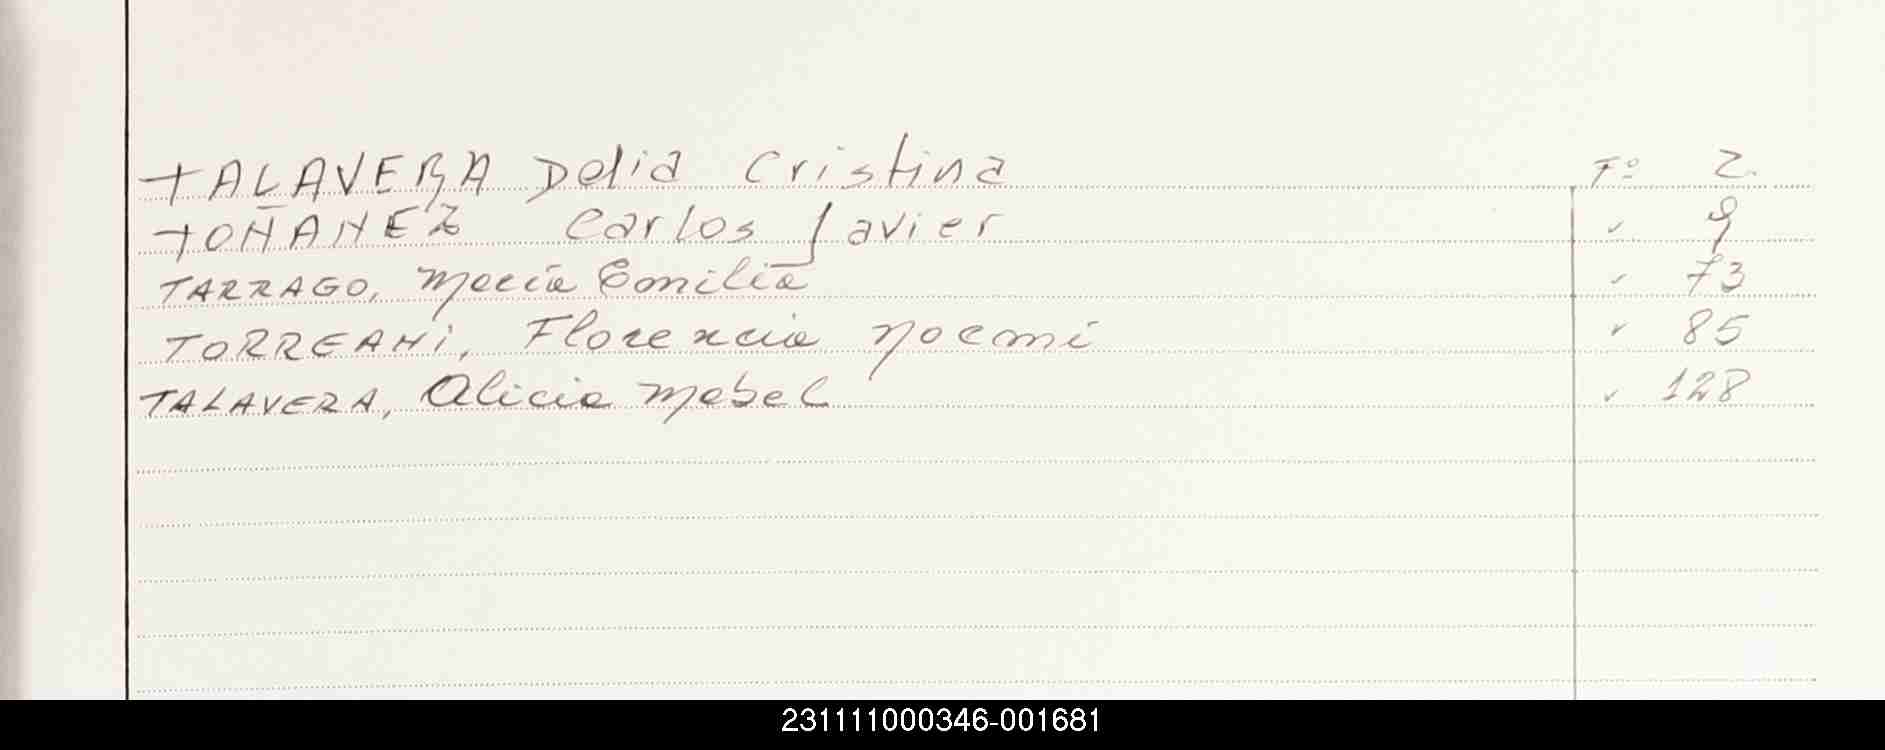 TALAVERA Delia Cristina Fº 2.
TOÑANEZ Carlos Javier ✓ 9
TARRAGO, María Emilia ✓ 73
TORREANi, Florencia Noemí ✓ 85
TALAVERA, Alicia Mabel ✓ 128
231111000346-001681